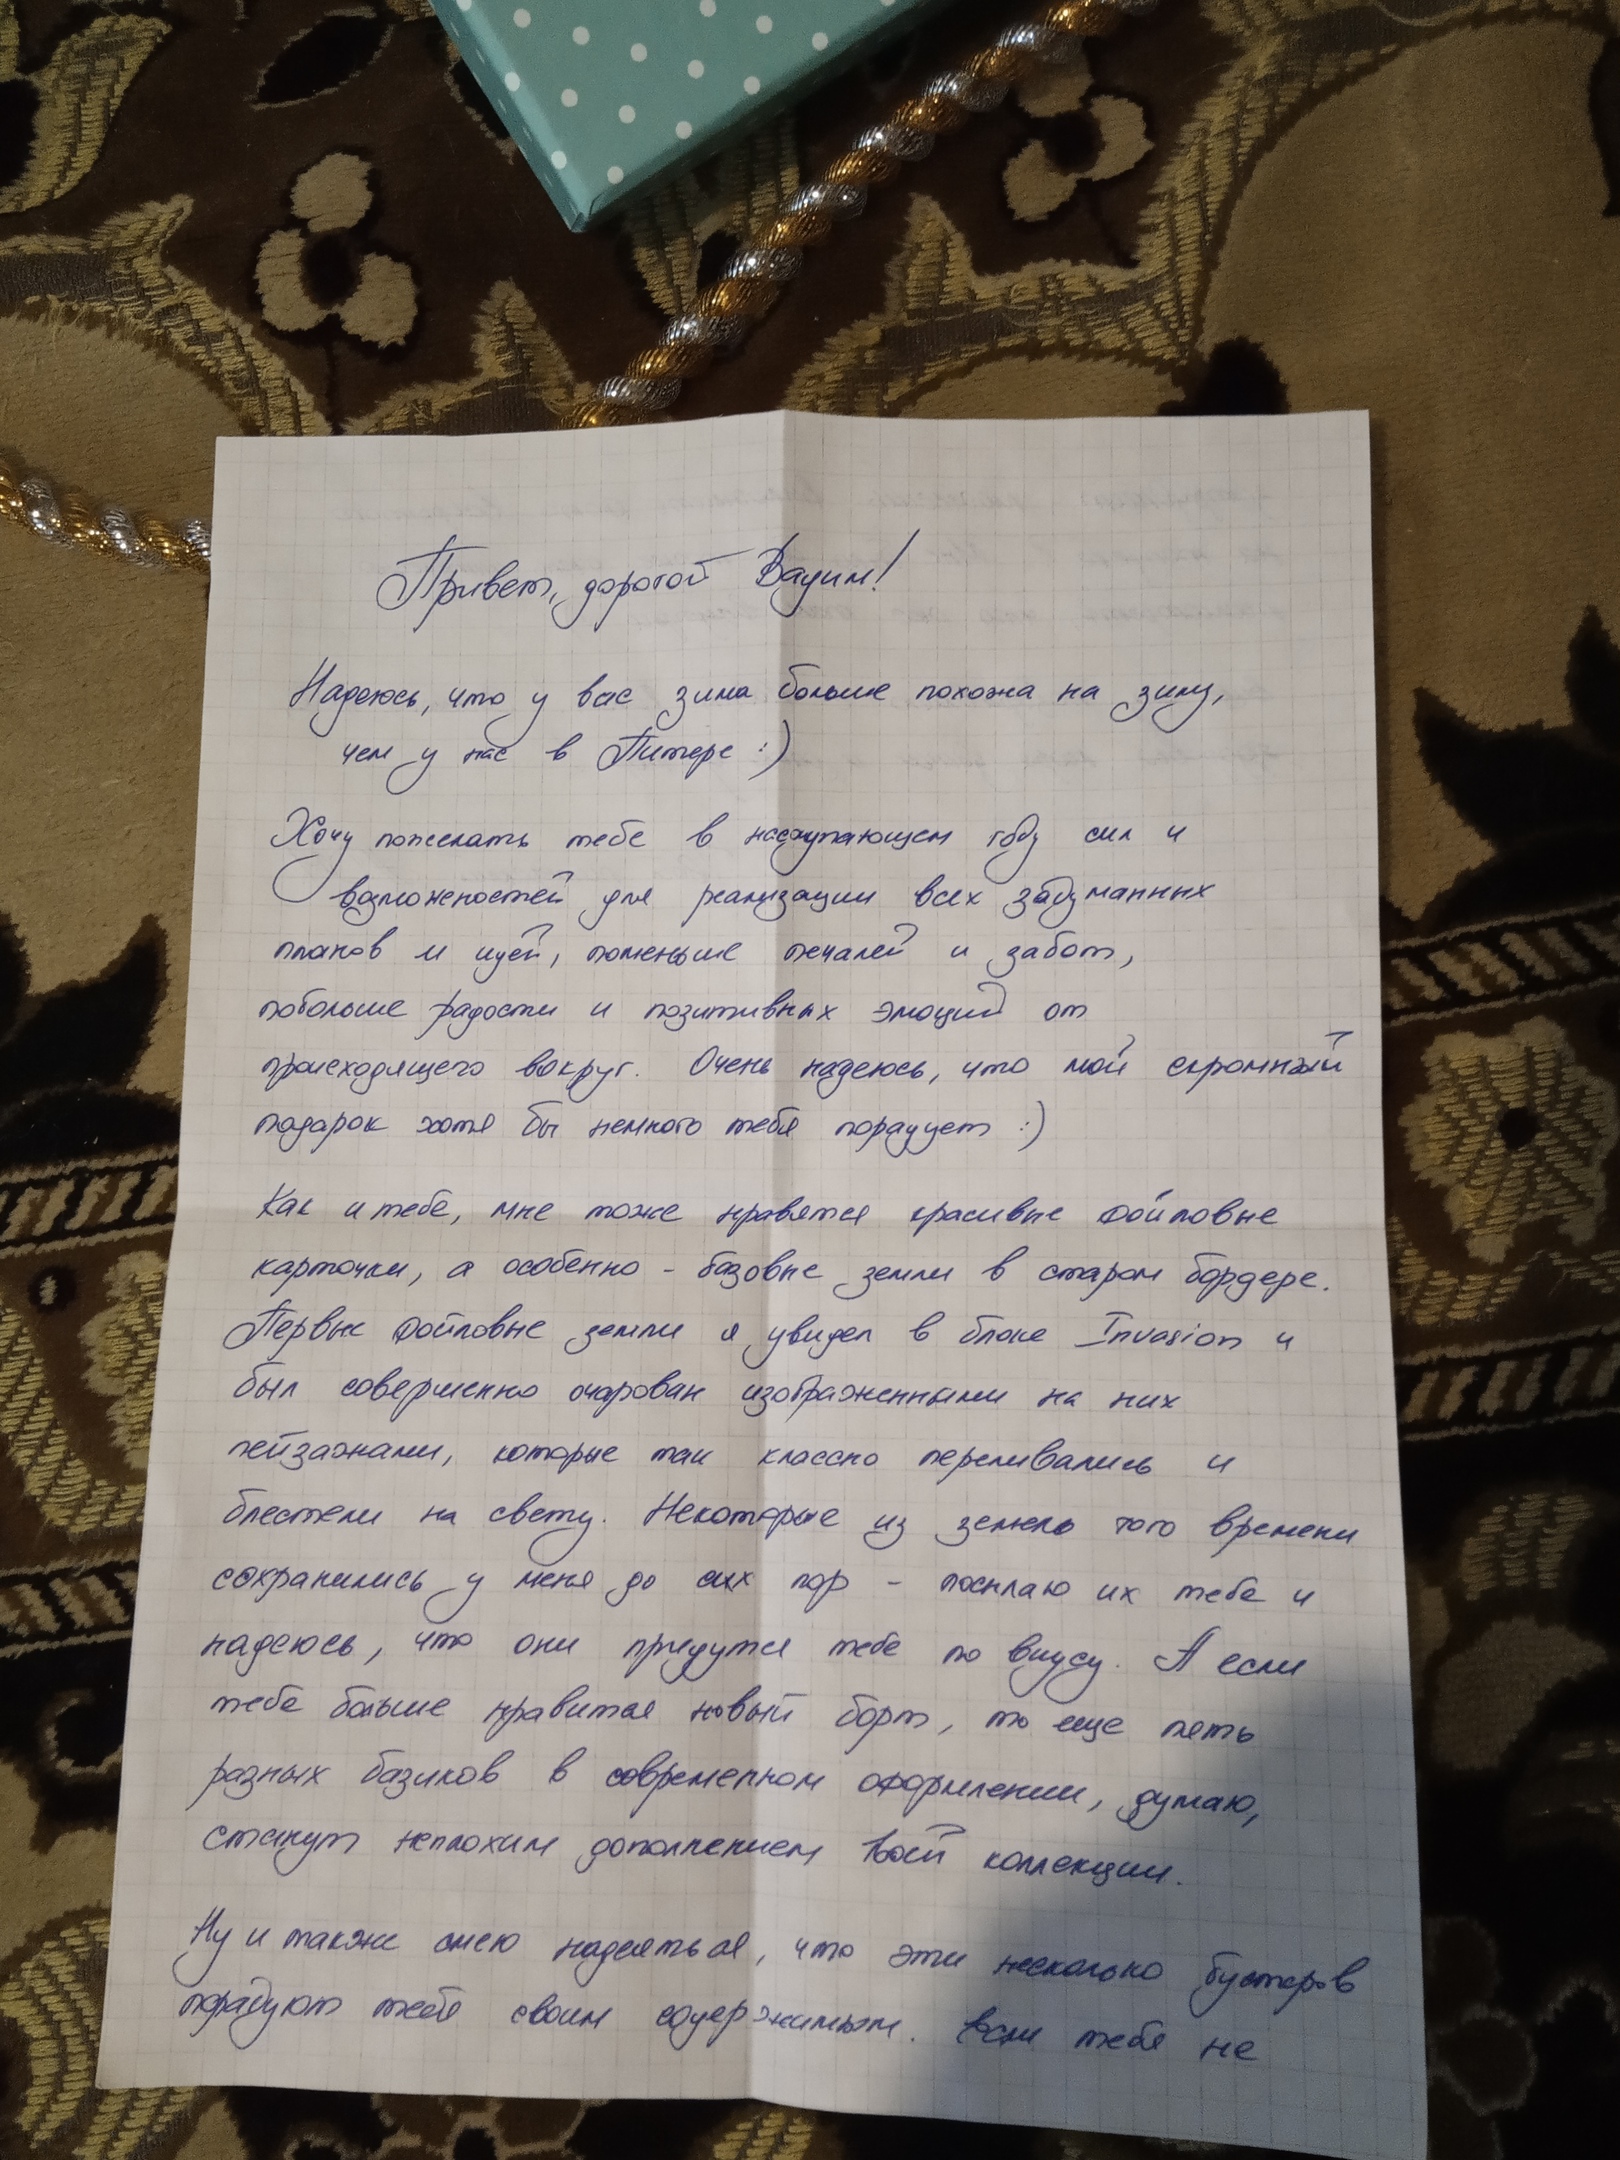 Привет, дорогой Вадим!
Надеюсь, что у вас зима больше похожа на зиму,
чем у нас в Питере :)
Хочу пожелать тебе в наступающем году сил и
возможностей для реализации всех задуманных
планов и идей, поменьше печалей и забот,
побольше радости и позитивных эмоций от
происходящего вокруг. Очень надеюсь, что мой скромный
подарок хотя бы немного тебя порадует :)
Как и тебе, мне тоже нравятся красивые фойловые
карточки, а особенно - базовые земли в старом бордере.
Первые фойловые земли я увидел в блоке Invasion и
был совершенно очарован изображенными на них
пейзажами, которые так классно переливались и
блестели на свету. Некоторые из земель того времени
сохранились у меня до сих пор - посылаю их тебе и
надеюсь, что они придутся тебе по вкусу. А если
тебе больше нравится новый борт, то еще пять
разных базиков в современном оформлении, думаю,
станут неплохим дополнением твоей коллекции.
Ну и также смею надеяться, что эти несколько бустеров
порадуют тебя своим содержимым. Если тебе не